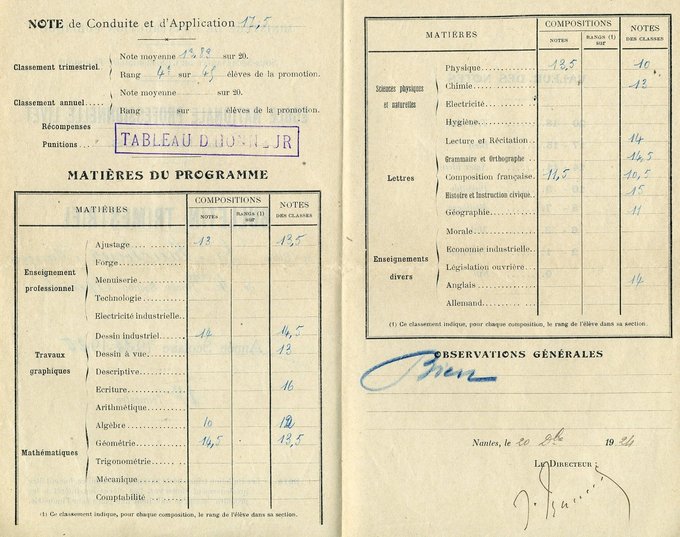 NOTE de Conduite et d'Application 17,5
Classement trimestriel.
Note moyenne 12,83 sur 20.
Rang sur 45 élèves de la promotion.
Classement annuel.
Note moyenne sur 20.
Rang sur élèves de la promotion.
Récompenses
Punitions
TABLEAU D'HONNEUR
MATIÈRES DU PROGRAMME
MATIÈRES COMPOSITIONS NOTES
NOTES RANGS (1) sur DES CLASSES
Enseignement professionnel
Ajustage 13 13,5
Forge
Menuiserie
Technologie
Electricité industrielle
Travaux graphiques
Dessin industriel 14 14,5
Dessin à vue 13
Descriptive
Ecriture 16
Mathématiques
Arithmétique
Algèbre 10 12
Géométrie 14,5 13,5
Trigonométrie
Mécanique
Comptabilité
(1) Ce classement indique, pour chaque composition, le rang de l'élève dans sa section.
MATIÈRES COMPOSITIONS NOTES
NOTES RANGS (1) sur DES CLASSES
Sciences physiques et naturelles
Physique 12,5 10
Chimie 12
Electricité
Hygiène
Lettres
Lecture et Récitation 14
Grammaire et Orthographe 14,5
Composition française 11,5 10,5
Histoire et Instruction civique 15
Géographie 11
Enseignements divers
Morale
Economie industrielle
Législation ouvrière
Anglais 14
Allemand
(1) Ce classement indique, pour chaque composition, le rang de l'élève dans sa section.
OBSERVATIONS GÉNÉRALES
Bien
Nantes, le 20 Dbe 1924
LE DIRECTEUR :